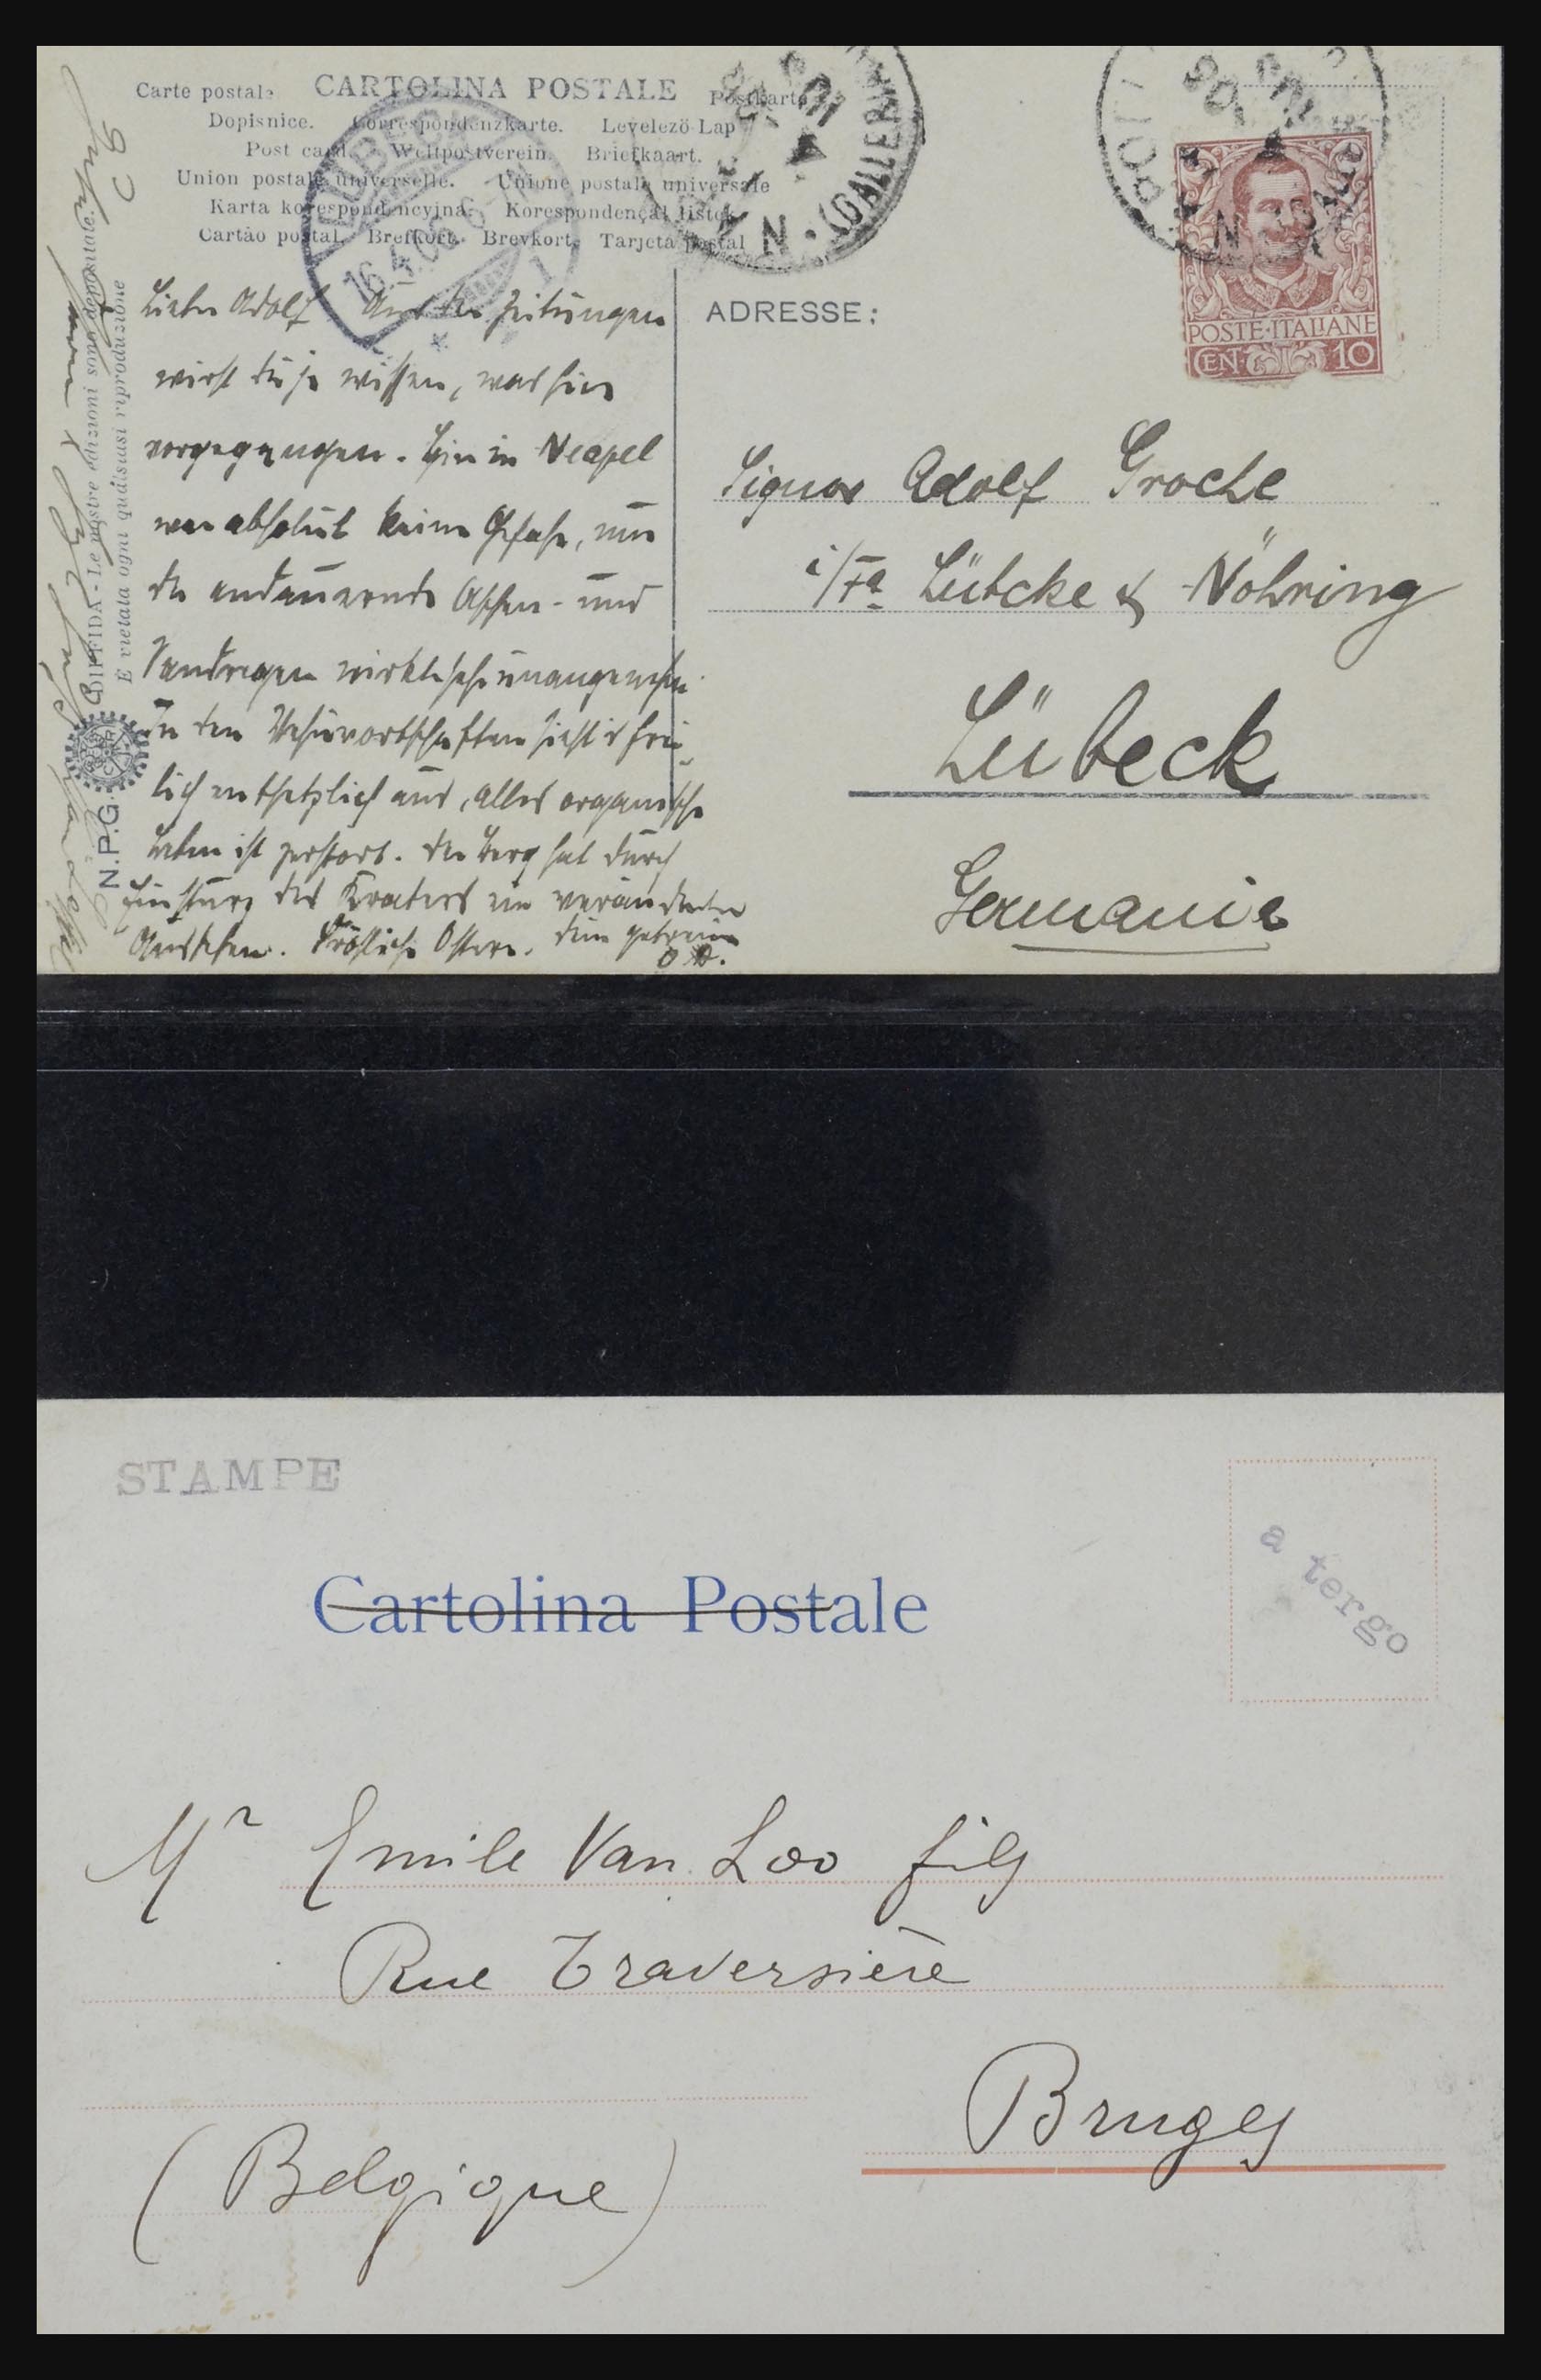 Carte postale CARTOLINA POSTALE Postkarte
Dopisnice. Correspondenzkarte. Levelezö-Lap
Post card. Weltpostverein. Briefkaart.
Union postale universelle. Unione postale universale
Karta korespondencyjna. Korespondençal listek
Cartão postal. Brefkort. Brevkort. Tarjeta postal
16.4.06
(GALLERIA
Lieber Adolf Aus den Zeitungen
wirst du ja wissen, was hier
vorgegangen. Hier in Neapel
war absolut keine Gefahr, nur
der andauernde Aschen- und
Sandregen wirklich unangenehm.
In den Vesuvortschaften sieht es frei-
lich entsetzlich aus, alles organische
Leben ist zerstört. Der Berg hat durch
Einsturz des Kraters ein verändertes
Aussehen. Fröhliche Ostern. Dein getreuer
O.
DIFFIDA - Le nostre edizioni sono depositate.
E vietata ogni qualsiasi riproduzione
N.P.G.
ADRESSE:
POSTE·ITALIANE
CEN· 10
Signor Adolf Grothe
i/Fa Lübcke & Nöhring
Lübeck
Germania
STAMPE
a tergo
Cartolina Postale
Mr Emile Van Loo fils
Rue Traversière
Bruges
(Belgique)